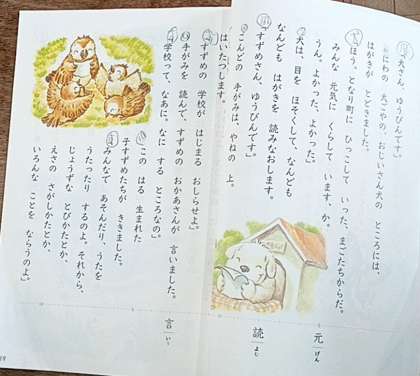 犬さん、ゆうびんです。」
にわの 犬ごやの、おじいさん犬の ところには、
はがきが とどきました。
「ほう、となり町に ひっこして いった、まごたちからだ。
みんな、元気に くらして います、か。
うん、よかった、よかった。」
犬は、目を ほそくして、なんども
なんども はがきを 読みなおします。
「すずめさん、ゆうびんです。」
こんどの 手がみは、やねの 上。
はいたつします。
「すずめの 学校が はじまる おしらせよ。」
手がみを 読んで、すずめの おかあさんが 言いました。
「学校って、なあに。なにを する ところなの。」
この はる 生まれた
子すずめたちが ききました。
「みんなで あそんだり、うたを
うたったり するのよ。それから、
じょうずな とびかたとか、
えさの さがしかたとか、
いろんな ことを ならうのよ。」
元 げん
読 よむ
言 いう